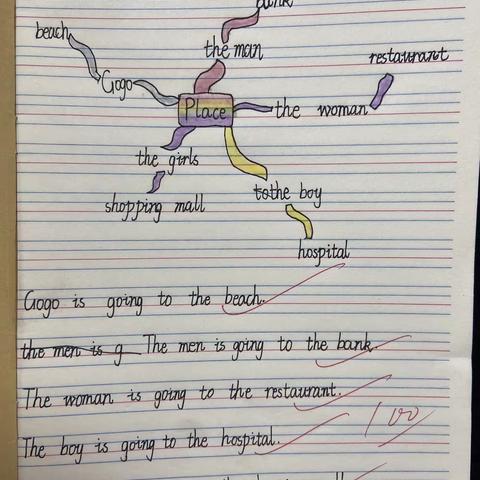 bank
beach
the man
restaurant
Gogo
Place
the woman
the girls
to the boy
shopping mall
hospital
Gogo is going to the beach.
the men is g The men is going to the bank.
The woman is going to the restaurant.
100
The boy is going to the hospital.